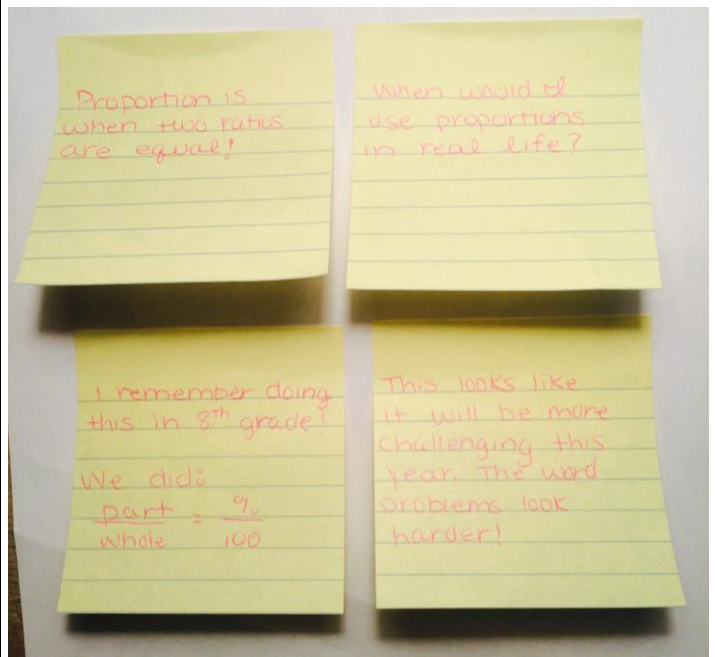 Proportion is
when two ratios
are equal!
When would I
use proportions
in real life?
I remember doing
this in 8th grade!
We did:
part = %
whole 100
This looks like
it will be more
challenging this
year. The word
problems look
harder!